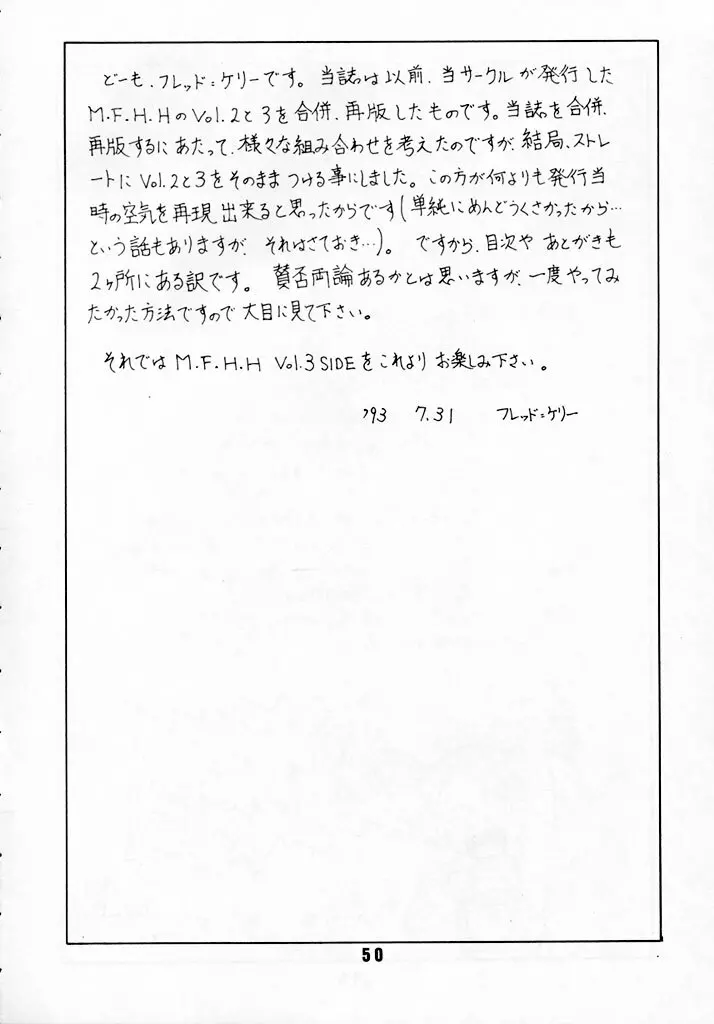 どーも、フレッド=ケリーです。当誌は以前、当サークルが発行した
M.F.H.HのVol.2と3を合併、再版したものです。当誌を合併、
再版するにあたって、様々な組み合わせを考えたのですが、結局、ストレ
ートにVol.2と3をそのままつける事にしました。この方が何よりも発行当
時の空気を再現出来ると思ったからです(単純にめんどうくさかったから…
という話もありますが、それはさておき…)。ですから、目次やあとがきも
2ヶ所にある訳です。賛否両論あるかとは思いますが、一度やってみ
たかった方法ですので大目に見て下さい。
それではM.F.H.H Vol.3 SIDEをこれよりお楽しみ下さい。
'93 7.31 フレッド=ケリー
50